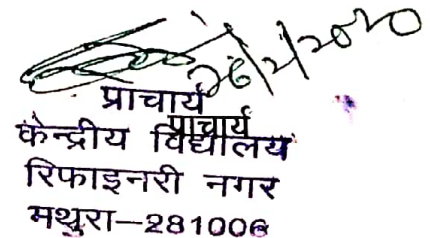 26/2/2020
प्राचार्य
प्राचार्य
केन्द्रीय विद्यालय
रिफाइनरी नगर
मथुरा-281006